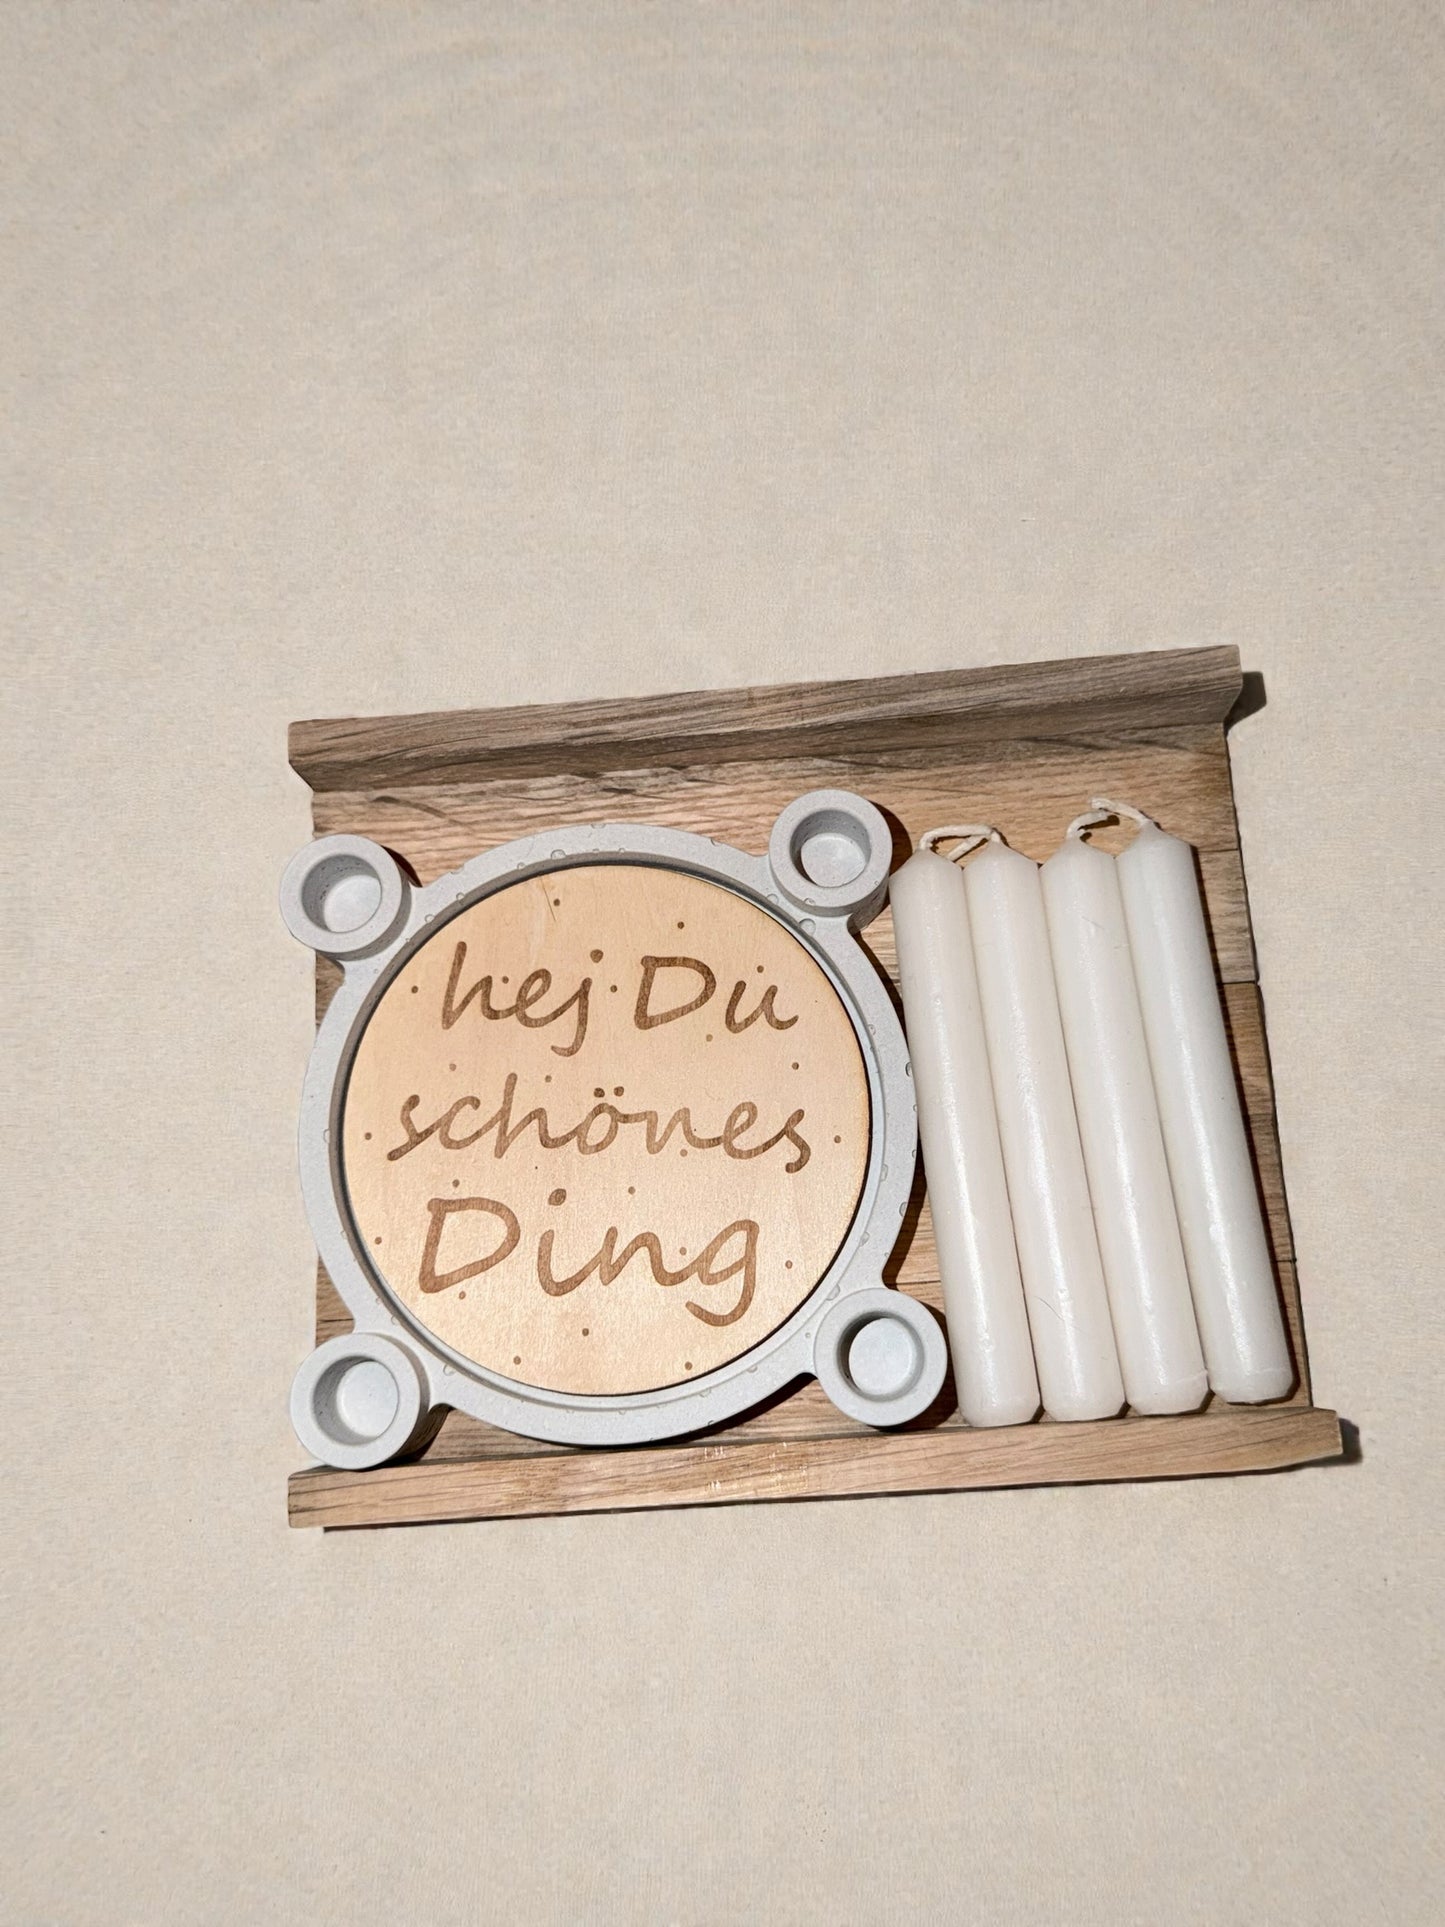 hej Du
schönes
Ding